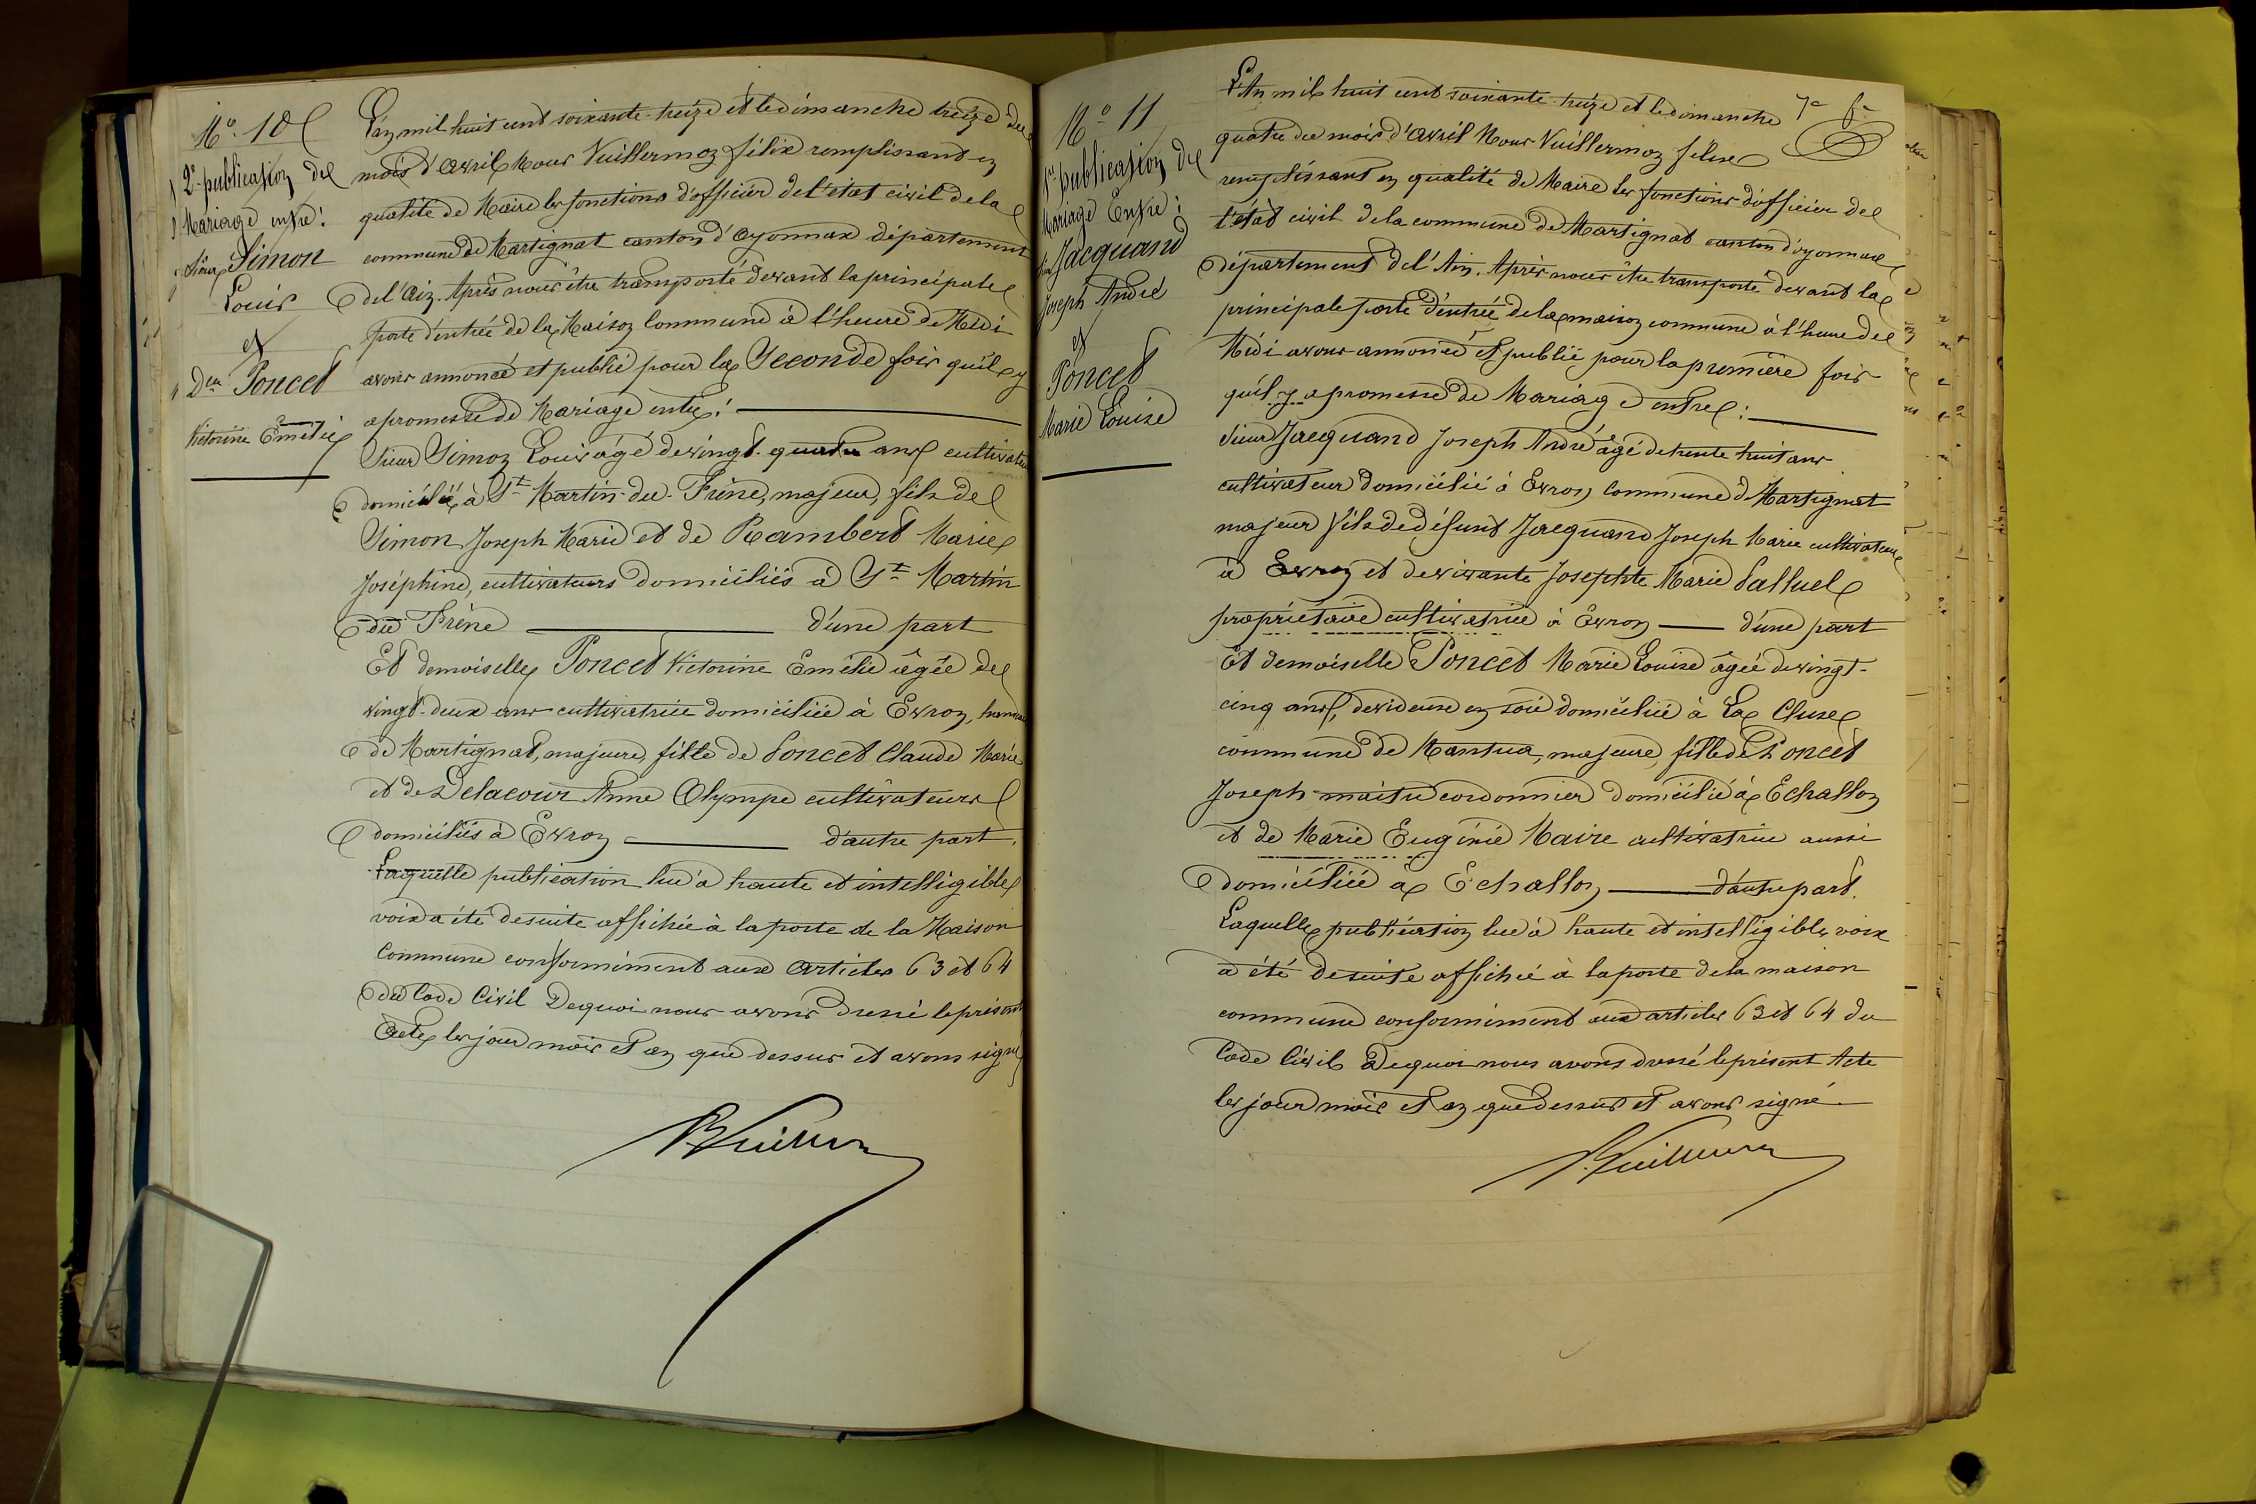 No. 10
2e publication de
Mariage entre:
Sieur Simon
Louis
et
Dlle Poncet
Victorine Emélie
L'an mil huit cent soixante-treize et le dimanche treize du
mois d'Avril Nous Vuillermoz félix remplissant en
qualité de Maire les fonctions d'officier de l'état civil de la
commune de Martignat canton d'Oyonnax département
de l'Ain. Après nous être transporté devant la principale
porte d'entrée de la Maison Commune à l'heure de Midi
avons annoncé et publié pour la Seconde fois qu'il y
a promesse de Mariage entre:
Sieur Simon Louis âgé de vingt-quatre ans cultivateur
domicilié à St Martin-du-Frêne, majeur, fils de
Simon Joseph Marie et de Rambert Marie
Joséphine, cultivateurs domiciliés à St Martin
du Frêne d'une part
Et demoiselle Poncet Victorine Emélie âgée de
vingt-deux ans cultivatrice domiciliée à Evron, hameau
de Martignat, majeure, fille de Poncet Claude Marie
et de Delacour Anne Olympe cultivateurs
domiciliés à Evron d'autre part.
Laquelle publication lue à haute et intelligible
voix a été de suite affichée à la porte de la Maison
Commune conformément aux articles 63 et 64
du Code Civil De quoi nous avons dressé le présent
Acte les jour mois et an que dessus et avons signé
No 11
1re publication de
Mariage Entre:
Jacquand
Joseph André
et
Poncet
Marie Louise
7e f.
L'An mil huit cent soixante-treize et le dimanche
quatre du mois d'Avril Nous Vuillermoz felix
remplissant en qualité de Maire les fonctions d'officier de
l'état civil de la commune de Martignat canton d'oyonnax
département de l'Ain. Après nous être transporté devant la
principale porte d'entrée de la maison commune à l'heure de
Midi avons annoncé et publié pour la première fois
qu'il y a promesse de Mariage entre:
Sieur Jacquand Joseph André âgé de trente huit ans
cultivateur domicilié à Evron Commune de Martignat
majeur fils de défunt Jacquand Joseph Marie cultivateur
à Evron et de vivante Josephte Marie Salluel
propriétaire cultivatrice à Evron d'une part
Et demoiselle Poncet Marie Louise âgée de vingt-
cinq ans, devideuse en soie domiciliée à La Cluse
commune de Nantua, majeure, fille de Poncet
Joseph maitre cordonnier domicilié à Echallon
et de Marie Eugénie Maire cultivatrice aussi
domiciliée à Echallon d'autre part.
Laquelle publication lue à haute et intelligible voix
a été de suite affichée à la porte de la maison
commune conformément aux articles 63 et 64 du
Code Civil De quoi nous avons dressé le présent Acte
les jour mois et an que dessus et avons signé.